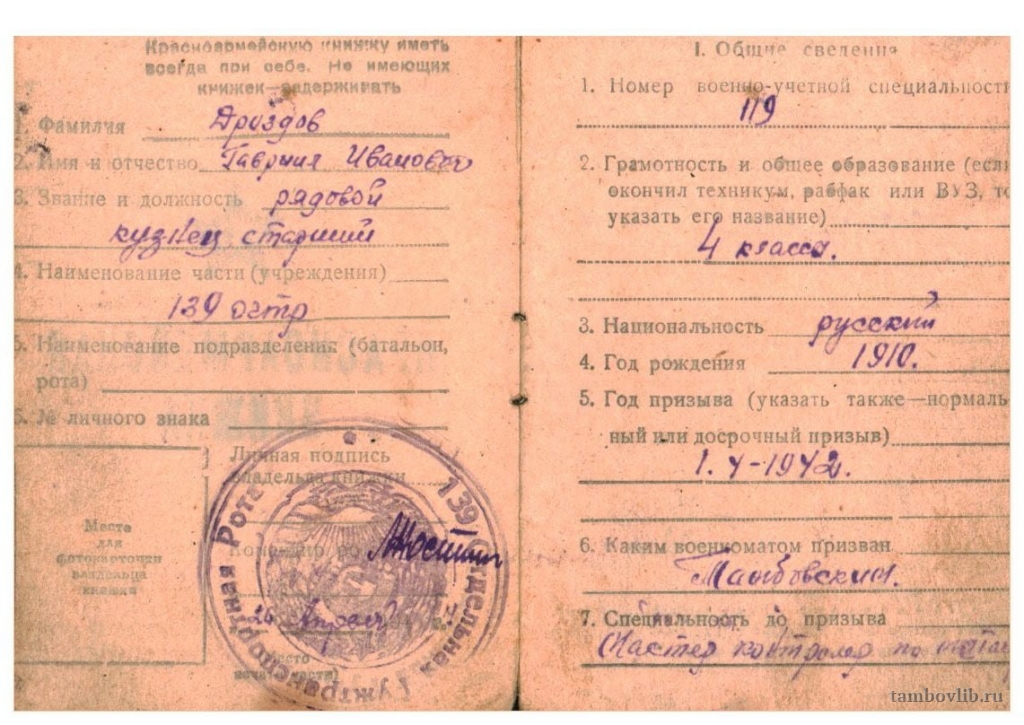 Красноармейскую книжку иметь
всегда при себе. Не имеющих
книжек—задерживать
1. Фамилия Дроздов
2. Имя и отчество Гавриил Иванович
3. Звание и должность рядовой
кузнец старший
4. Наименование части (учреждения)
139 огтр
5. Наименование подразделения (батальон,
рота)
6. № личного знака
Личная подпись
владельца книжки
Место
для
фотокарточки
владельца
книжки
Командир
26 Апреля
Место
печати части)
139 Отдельная Гужтранспортная Рота
I. Общие сведения
1. Номер военно-учетной специальност
119
2. Грамотность и общее образование (если
окончил техникум, рабфак или ВУЗ, то
указать его название)
4 класса.
3. Национальность русский
4. Год рождения 1910.
5. Год призыва (указать также—нормаль-
ный или досрочный призыв)
1. X-1942.
6. Каким военкоматом призван
Тамбовским.
7. Специальность до призыва
Мастер контролер по
tambovlib.ru